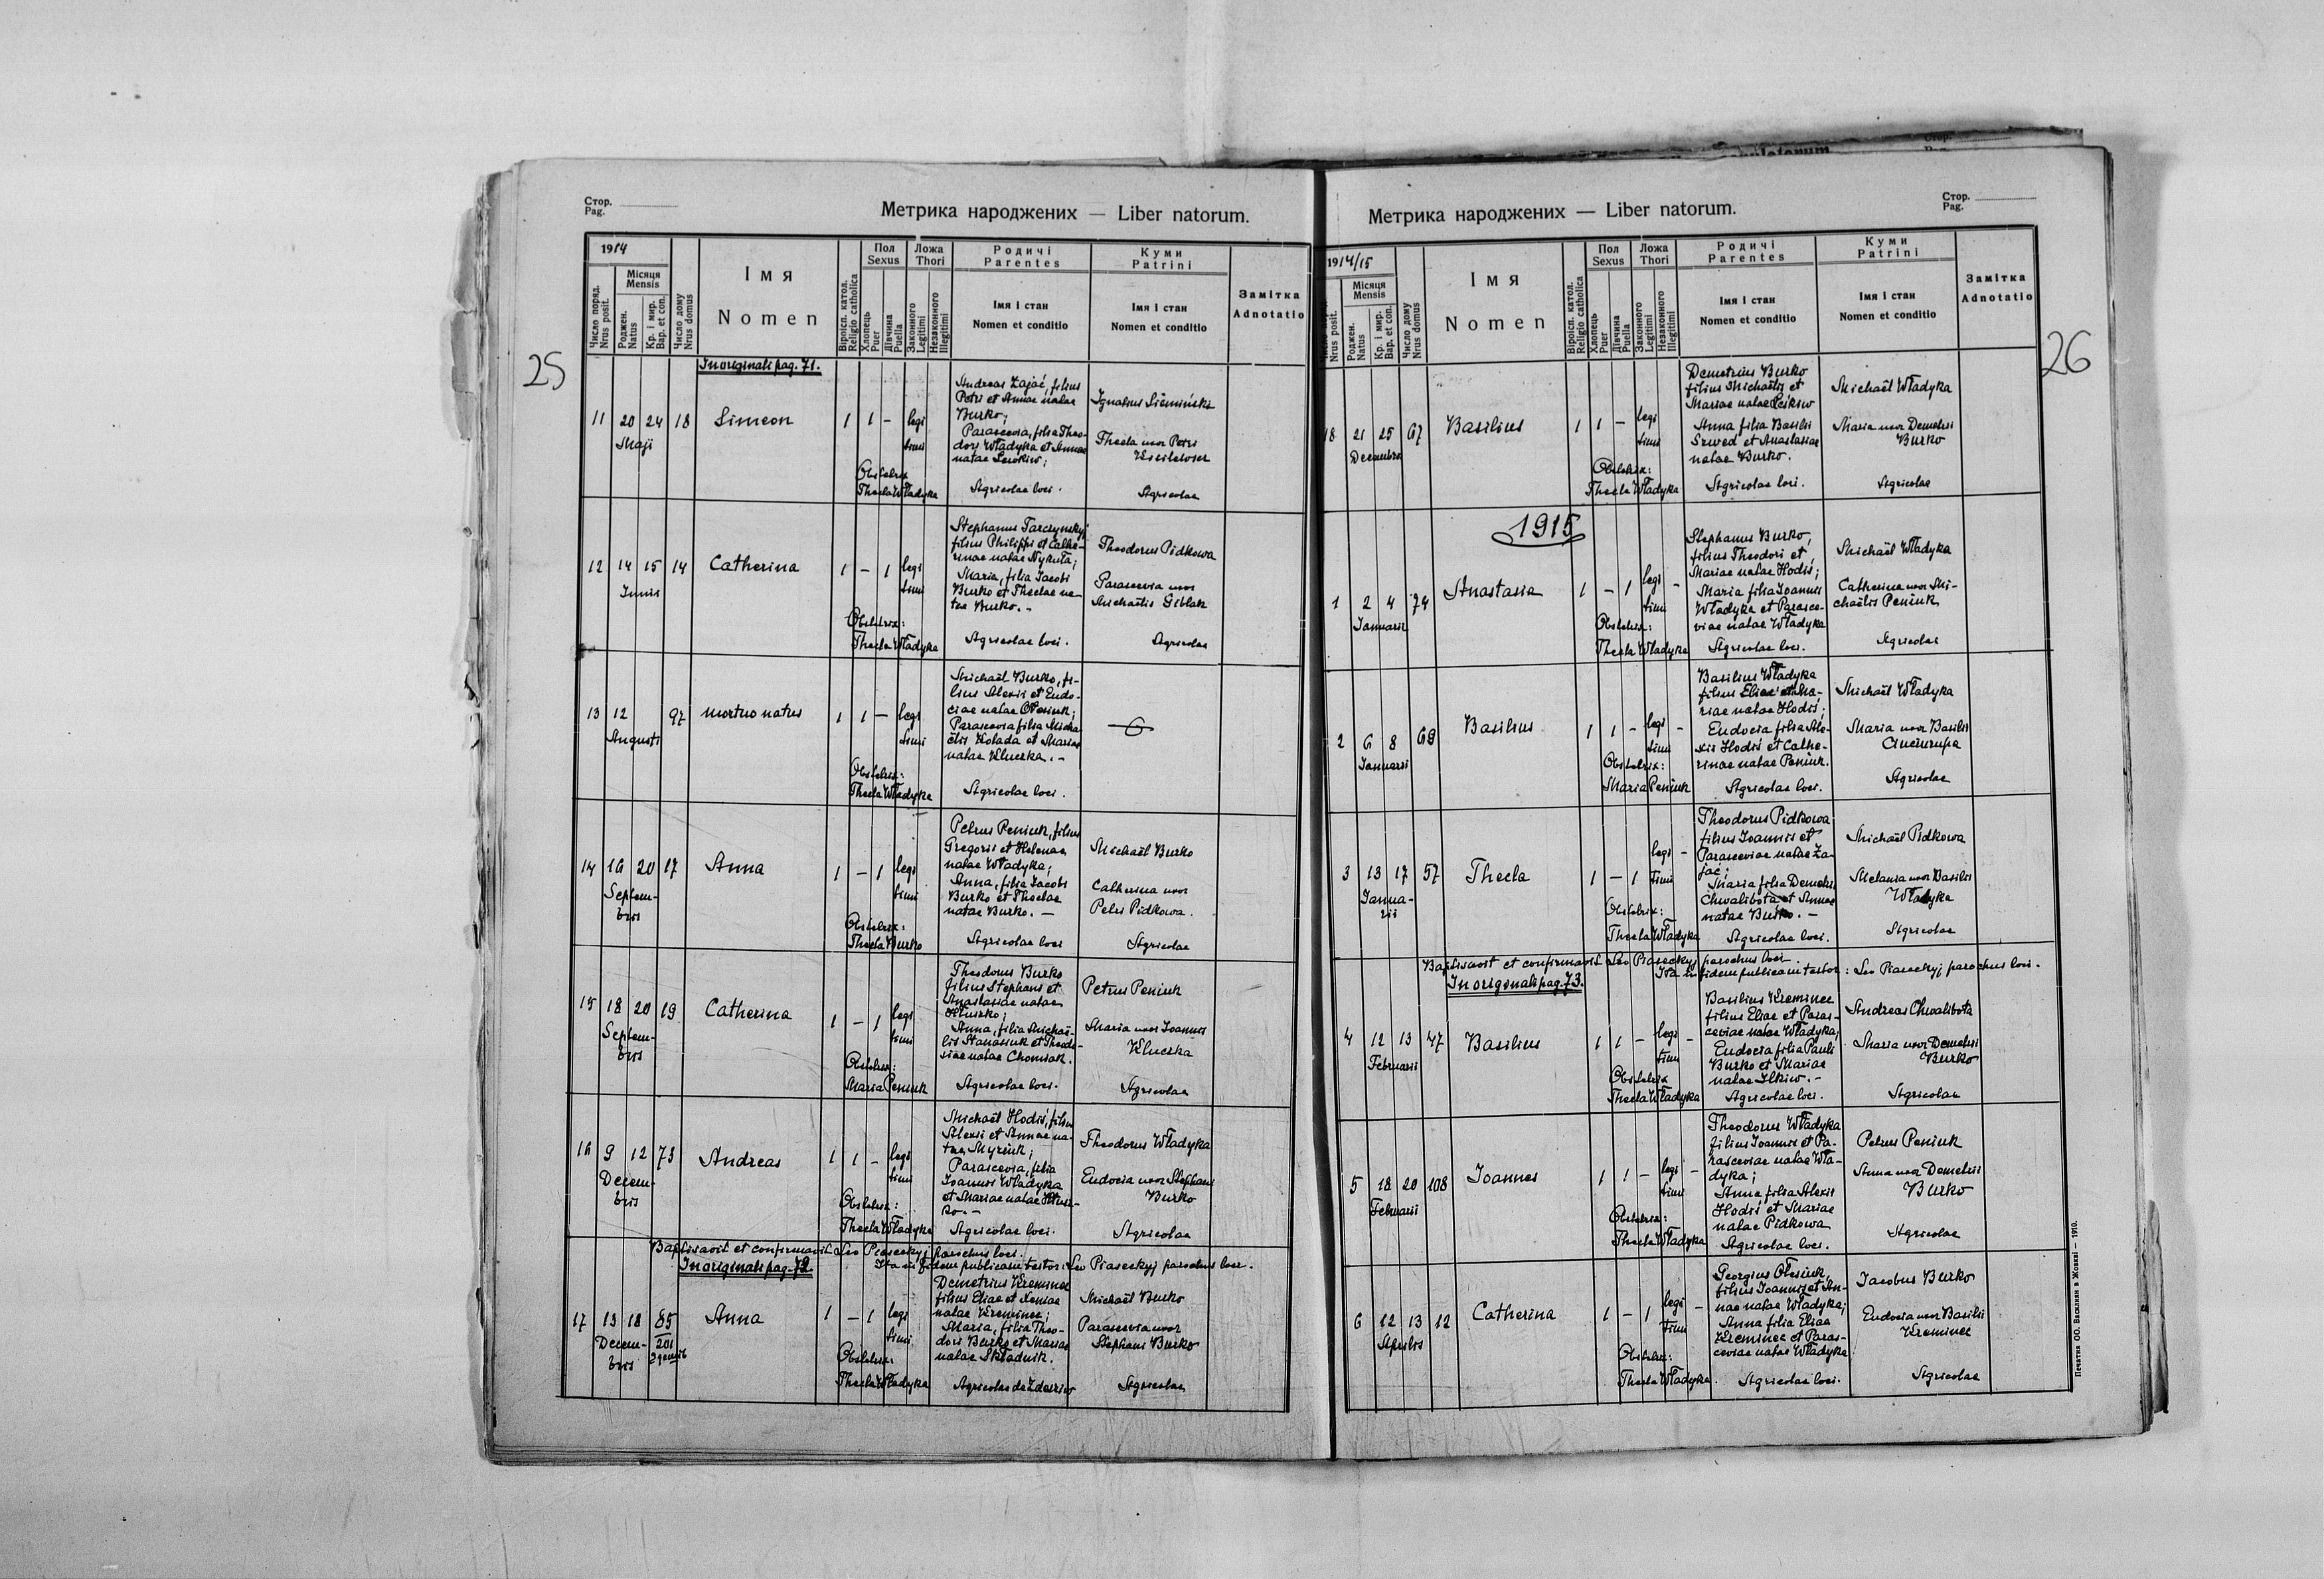 Стор.
Pag.
Метрика народжених — Liber natorum.
25
1914
Число поряд.
Nrus posit.
Місяця
Mensis
Роджен.
Natus
Кр. і мир.
Bap. et con.
Число дому
Nrus domus
Імя
Nomen
Віроісп. катол.
Religio catholica
Пол
Sexus
Хлопець
Puer
Дівчина
Puella
Ложа
Thori
Законного
Legitimi
Незаконного
Illegitimi
Родичі
Parentes
Імя і стан
Nomen et conditio
Куми
Patrini
Імя і стан
Nomen et conditio
Замітка
Adnotatio
In originali pag. 71.
11 20 24 18 Simeon 1 1 – legi
timi
Maji
Andreas Zajać, filius
Petri et Annae natae
Burko;
Parascevia, filia Theo-
dori Władyka et Annae
natae
Agricolae loci.
Ignatius
Thecla uxor Petri
Agricolae
Obstetrix
Thecla Władyka
12 14 15 14 Catherina 1 – 1 legi
timi
Junii
Stephanus Tarczynskyj
filius Philippi et Cathe-
rinae natae Nykuta;
Maria, filia Jacobi
Burko et Theclae na-
tae Burko. –
Agricolae loci.
Theodorus Pidkowa
Parascevia uxor
Michaëlis Giblak
Agricolae
Obstetrix:
Thecla Władyka
13 12 97 mortuo natus 1 1 – legi
timi
Augusti
Michaël Burko, fi-
lius Alexii et Eudo-
ciae natae
Parascevia filia Micha-
ëlis Kolada et Mariae
natae Kluczka. –
Agricolae loci.
Obstetrix:
Thecla Władyka
14 16 20 17 Anna 1 – 1 legi
timi
Septem-
bris
Petrus Peniuk, filius
Gregorii et Helenae
natae Władyka;
Anna, filia Jacobi
Burko et Theclae
natae Burko. –
Agricolae loci
Michaël Burko
Catherina uxor
Petri Pidkowa.
Agricolae
Obstetrix:
Thecla Burko
15 18 20 19 Catherina 1 – 1 legi
timi
Septem-
bris
Theodorus Burko
filius Stephani et
Anastasiae natae
Anna, filia Michaë-
lis Stanasiuk et Theodo-
siae natae Chomiak.
Agricolae loci.
Petrus Peniuk
Maria uxor Joannis
Kluczka
Agricolae
Obstetrix:
Maria Peniuk
16 9 12 73 Andreas 1 1 – legi
timi
Decem-
bris
Michaël Hodiś, filius
Alexii et Annae na-
tae
Parascevia, filia
Joannis Władyka
et Mariae natae
Agricolae loci.
Theodorus Władyka
Eudocia uxor Stephani
Burko
Agricolae
Obstetrix:
Thecla Władyka
Baptisavit et confirmavit Leo Piaseckyj parochus loci.
Ita in fidem publicam testor: Leo Piaseckyj parochus loci.
In originali pag. 72.
17 13 18 85 Anna 1 – 1 legi
timi
Decem-
bris
Demetrius Kreminec
filius Eliae et Xeniae
natae Kreminec;
Maria, filia Theo-
dori Burko et Mariae
natae Składnik.
Agricolae de
Michaël Burko
Parascevia uxor
Stephani Burko
Agricolae
Obstetrix:
Thecla Władyka
Стор.
Pag.
Метрика народжених — Liber natorum.
26
1914/15
Nrus posit.
Місяця
Mensis
Роджен.
Natus
Кр. і мир.
Bap. et con.
Число дому
Nrus domus
Імя
Nomen
Віроісп. катол.
Religio catholica
Пол
Sexus
Хлопець
Puer
Дівчина
Puella
Ложа
Thori
Законного
Legitimi
Незаконного
Illegitimi
Родичі
Parentes
Імя і стан
Nomen et conditio
Куми
Patrini
Імя і стан
Nomen et conditio
Замітка
Adnotatio
18 21 25 67 Basilius 1 1 – legi
timi
Decembris
Demetrius Burko
filius Michaëlis et
Mariae natae
Anna filia Basilii
Szwed et Anastasiae
natae Burko.
Agricolae loci.
Michaël Władyka
Maria uxor Demetrii
Burko
Agricolae
Obstetrix:
Thecla Władyka
1915
1 2 4 74 Anastasia 1 – 1 legi –
timi
Januarii
Stephanus Burko,
filius Theodori et
Mariae natae Hodiś;
Maria filia Joannis
Władyka et Parasce-
viae natae Władyka
Agricolae loci.
Michaël Władyka
Catherina uxor Mi-
chaëlis Peniuk
Agricolae
Obstetrix:
Thecla Władyka
2 6 8 69 Basilius 1 1 – legi –
timi
Januarii
Basilius Władyka
filius Eliae et Ma-
riae natae Hodiś;
Eudocia filia Ale-
xii Hodiś et Cathe-
rinae natae Peniuk.
Agricolae loci.
Michaël Władyka
Maria uxor Basilii
Agricolae
Obstetrix:
Maria Peniuk
3 13 17 57 Thecla 1 – 1 legi –
timi
Janua-
rii
Theodorus Pidkowa
filius Joannis et
Parasceviae natae Za-
jać;
Maria filia Demetrii
Chwalibota et Annae
natae Burko. –
Agricolae loci.
Michaël Pidkowa
Melania uxor Basilii
Władyka
Agricolae
Obstetrix:
Thecla Władyka
Baptisavit et confirmavit Leo Piaseckyj parochus loci.
Ita in fidem publicam testor: Leo Piaseckyj parochus loci.
In originali pag. 73.
4 12 13 47 Basilius 1 1 – legi –
timi
Februarii
Basilius Kreminec
filius Eliae et Paras-
ceviae natae Władyka;
Eudocia filia Pauli
Burko et Mariae
natae Ilkiw. –
Agricolae loci.
Andreas Chwalibota
Maria uxor Demetrii
Burko
Agricolae
Obstetrix
Thecla Władyka
5 18 20 108 Joannes 1 1 – legi –
timi
Februarii
Theodorus Władyka
filius Joannis et Pa-
rasceviae natae Wła-
dyka;
Anna filia Alexii
Hodiś et Mariae
natae Pidkowa
Agricolae loci.
Petrus Peniuk
Anna uxor Demetrii
Burko
Agricolae
Obstetrix:
Thecla Władyka
6 12 13 12 Catherina 1 – 1 legi –
timi
Aprilis
Georgius Olesiuk,
filius Joannis et An-
nae natae Władyka;
Anna filia Eliae
Kreminec et Paras-
ceviae natae Władyka
Agricolae loci.
Jacobus Burko
Eudocia uxor Basilii
Kreminec
Agricolae
Obstetrix:
Thecla Władyka.
Печатня ОО. Василиян в Жовкві — 1910.